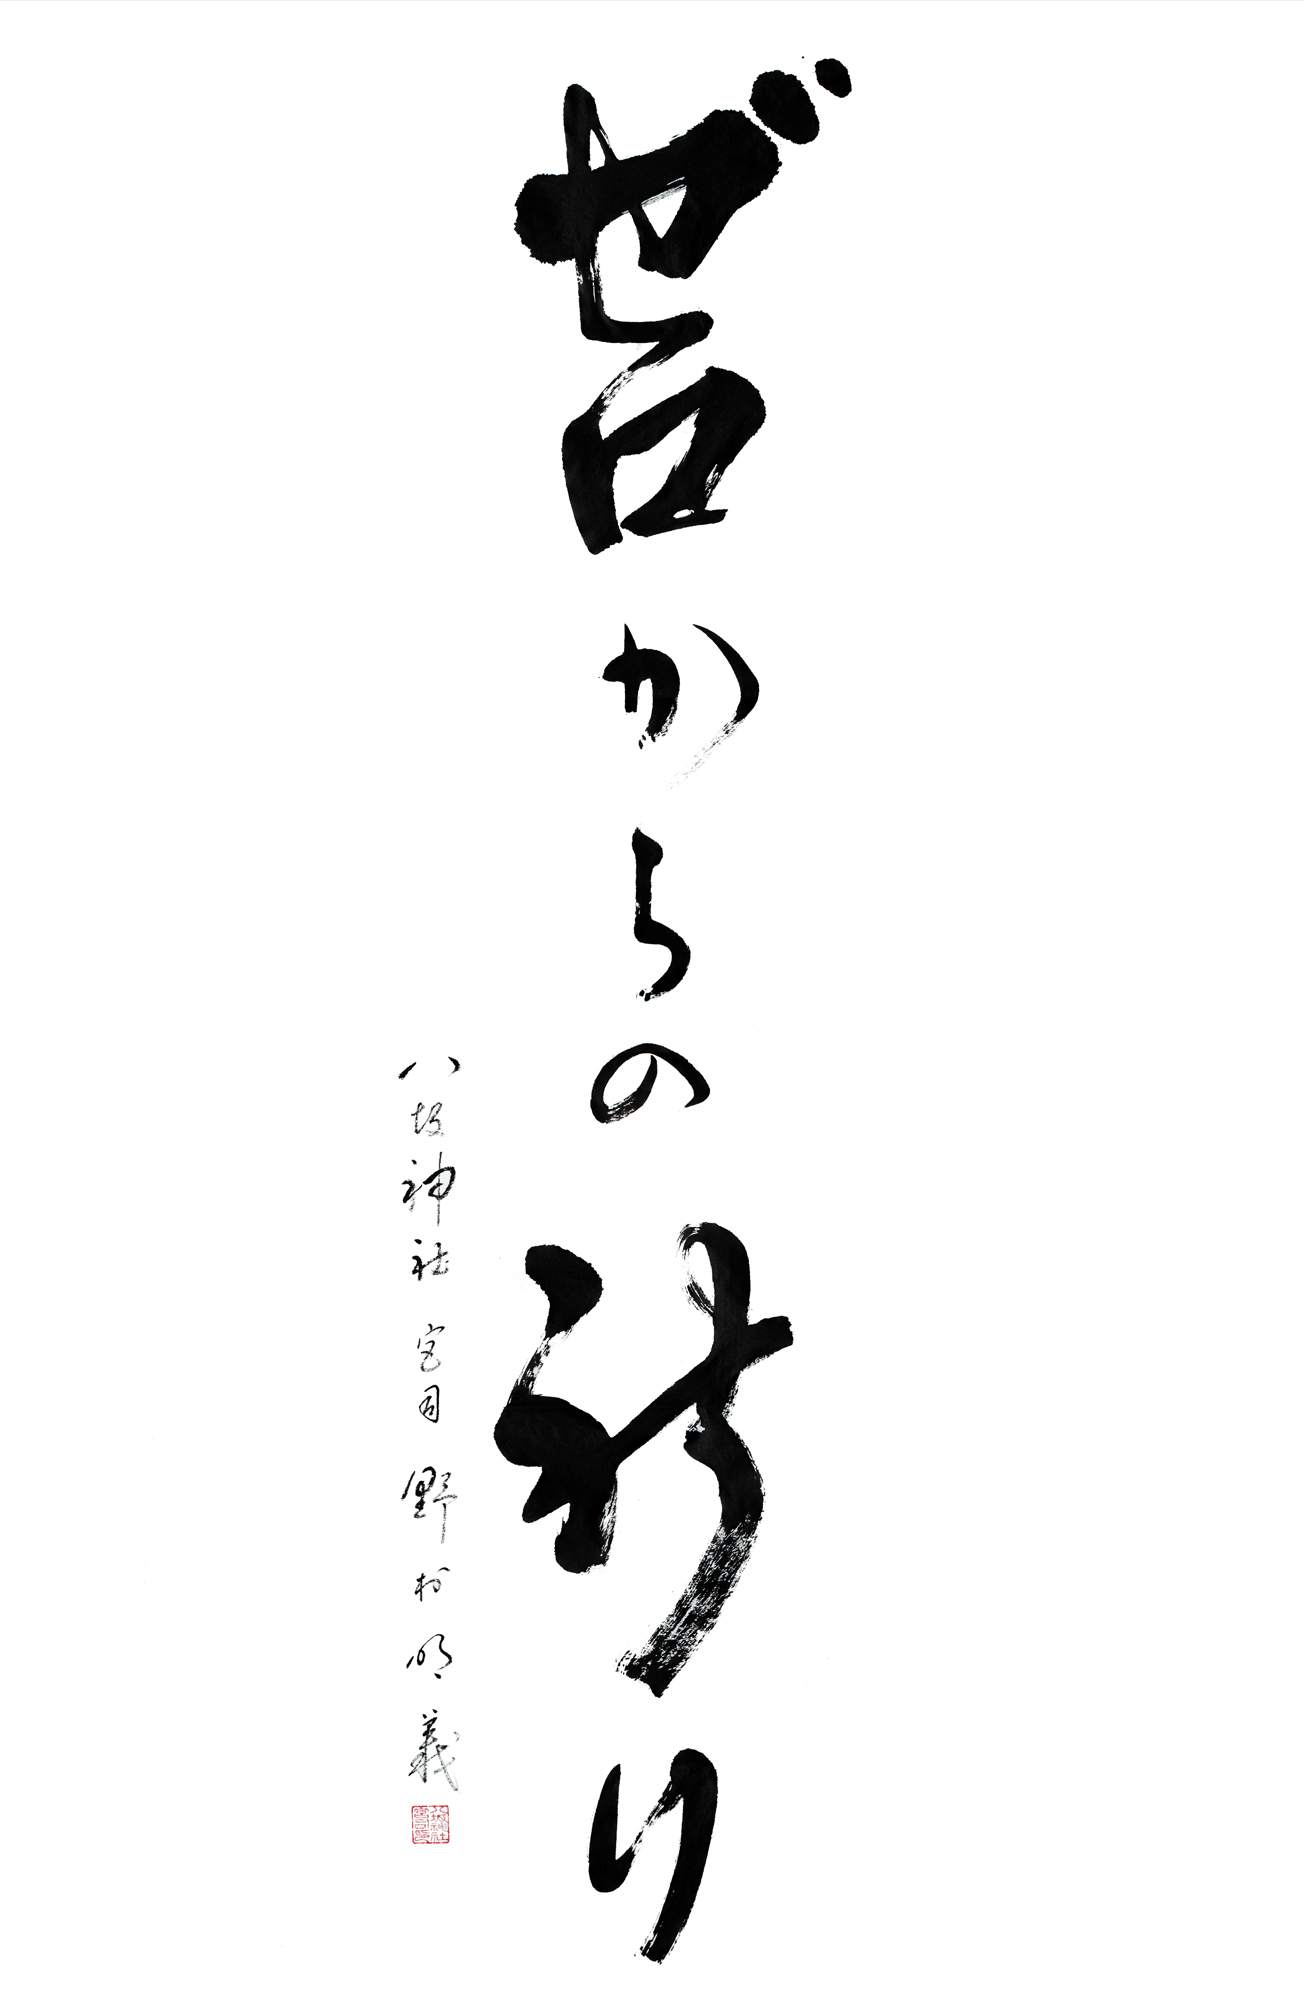 ゼロからの祈り
八坂神社 宮司 野村明義